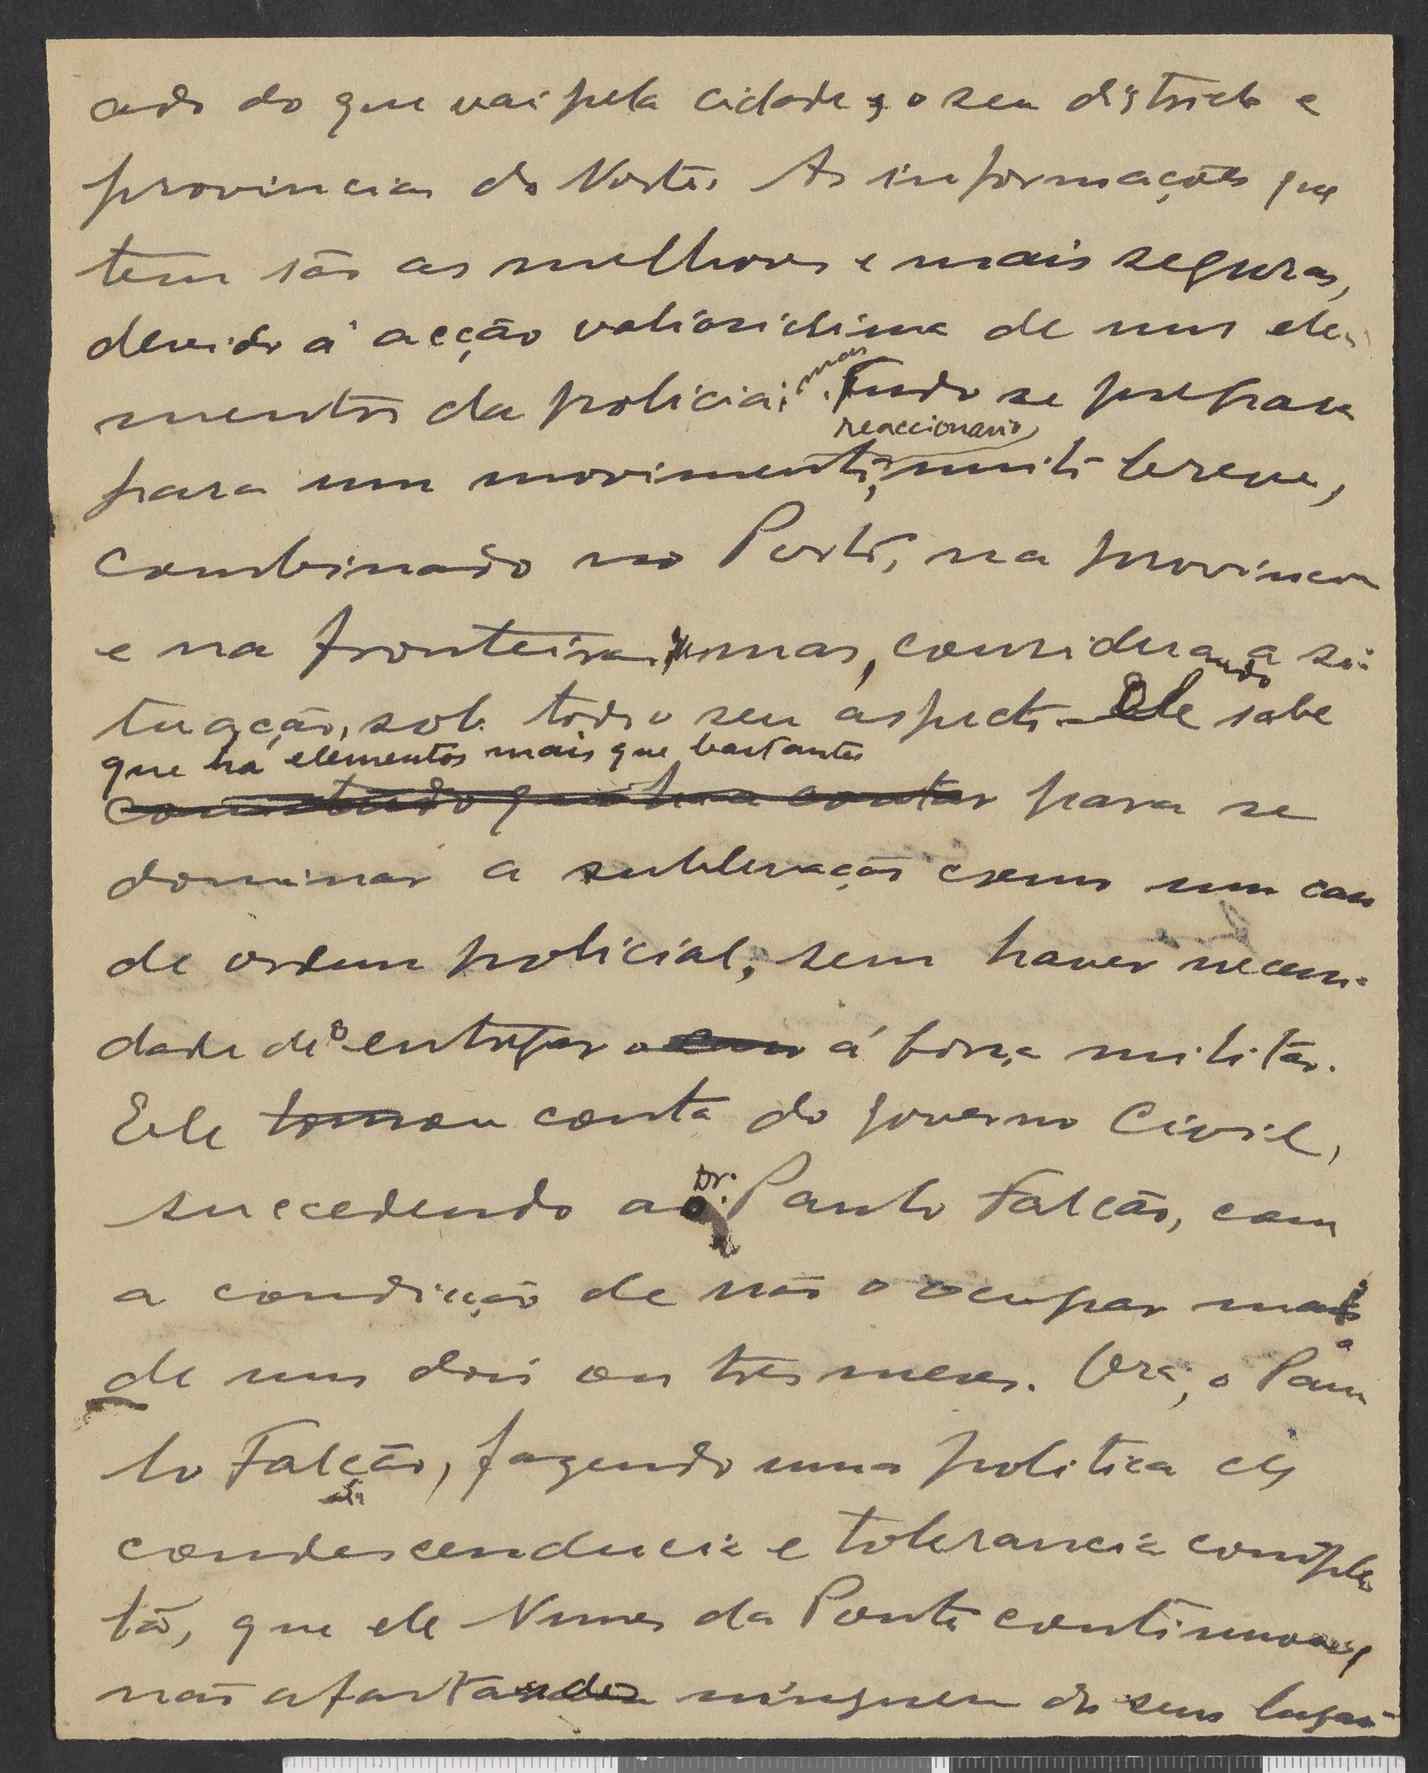 cado do que vai pela cidade, o seu districto e
provincias do Norte. As informações que
tem são as melhores e mais seguras,
devido á acção valiosissima de uns ele-
mentos da policia; mas tudo se prepara
para um movimento reaccionario, muito breve,
combinado no Porto, na provincia
e na fronteira, mas, considerando a si-
tuação, sob todo o seu aspecto – Ele sabe
que ha elementos mais que bastantes
para se
dominar a sublevação como um caso
de ordem policial, sem haver necessi-
dade de o entregar á força militar.
Ele tomou conta do governo Civil,
succedendo ao Dr. Paulo Falcão, com
a condição de não o occupar mais
de uns dois ou tres meses. Ora, o Pau
lo Falcão, fazendo uma politica de
condescendencia e tolerancia comple
ta, que ele Nunes da Ponte continuou,
não afastando ninguem do seu lugar